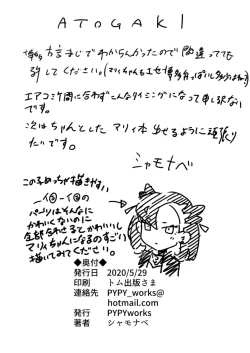 ATOGAKI
博多方言まじでわからんかったので間違ってても
許してください。(マリィちゃんもエセ博多弁っぽいし多分
エアコミケ間に合わずこんなタイミングになって申し訳ない
です。
次はちゃんとした マリィ本 出せるように頑張り
たいです。
シャモナベ
この子めっちゃ描きやすい
パーツはそんなに
かわいくないのに
全部合わさてかわいい
マリィちゃんになるのすごい
描いてみてください。
◆奥付◆
発行日 2020/5/29
印刷 トム出版さま
連絡先 PYPY_works@
hotmail.com
発行 PYPYworks
著者 シャモナベ